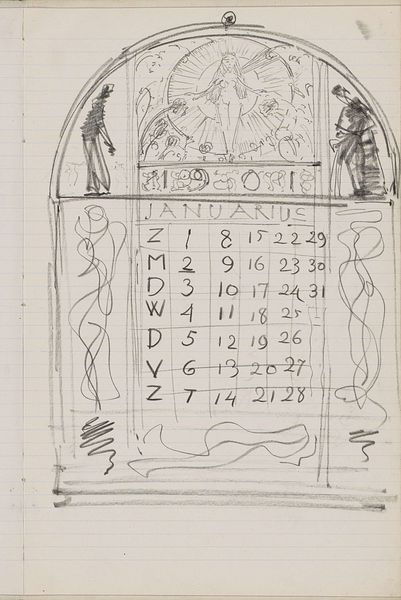 1901
JANUARIUS
Z 1 8 15 22 29
M 2 9 16 23 30
D 3 10 17 24 31
W 4 11 18 25
D 5 12 19 26
V 6 13 20 27
Z 7 14 21 28